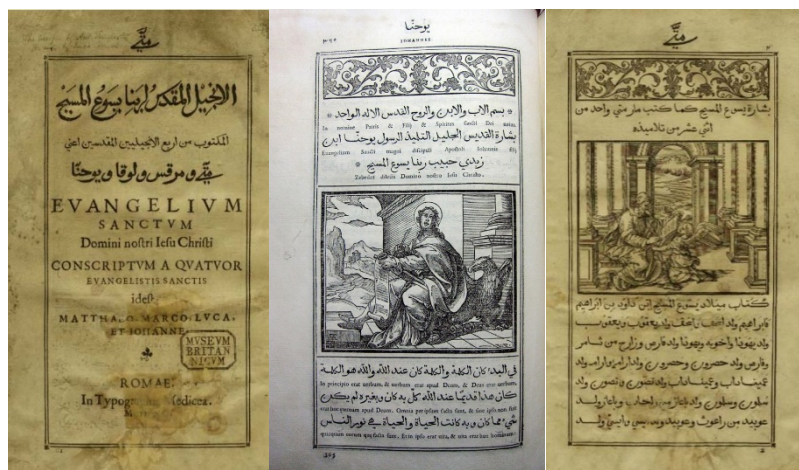 متّى
الانجيل المقدس لربنا يسوع المسيح
المكتوب من اربع الانجيليين المقدسين اعني
متّى ومرقس ولوقا ويوحنّا
EVANGELIVM
SANCTVM
Domini nostri Iesu Christi
CONSCRIPTVM A QVATVOR
EVANGELISTIS SANCTIS
idest,
MATTHAEO, MARCO, LVCA,
ET IOHANNE.
MVSEVM
BRITAN
NICVM
ROMAE,
In Typographia Medicea.
يوحنّا
IOHANNES
بسم الاب والابن والروح القدس الاله الواحد
In nomine Patris & Filij & Spiritus sancti Dei unius.
بشارة القديس الجليل التلميذ الرسول يوحنّا ابن
Euangelium Sancti magni discipuli Apostoli Iohannis filij
زبدي حبيب ربنا يسوع المسيح
Zebedaei dilecti Domino nostro Iesu Christo.
في البدء كان الكلمة والكلمة كان عند الله والله هو الكلمة
In principio erat uerbum, & uerbum erat apud Deum, & Deus erat uerbum.
كان هذا قديمًا عند الله كل به كان وبغيره لم يكن
شي مما كان وبه كانت الحياة والحياة هي نور الناس
متّى
بشارة يسوع المسيح كما كتب مار متي واحد من
اثني عشر من تلاميذه
كتاب ميلاد يسوع المسيح ابن داود بن ابراهيم
فابراهيم ولد اسحق واسحق ولد يعقوب ويعقوب
ولد يهوذا واخوته ويهوذا ولد فارص وزارح من ثامر
وفارص ولد حصرون وحصرون ولد ارام وارام ولد
عميناداب وعميناداب ولد نصون ونصون ولد